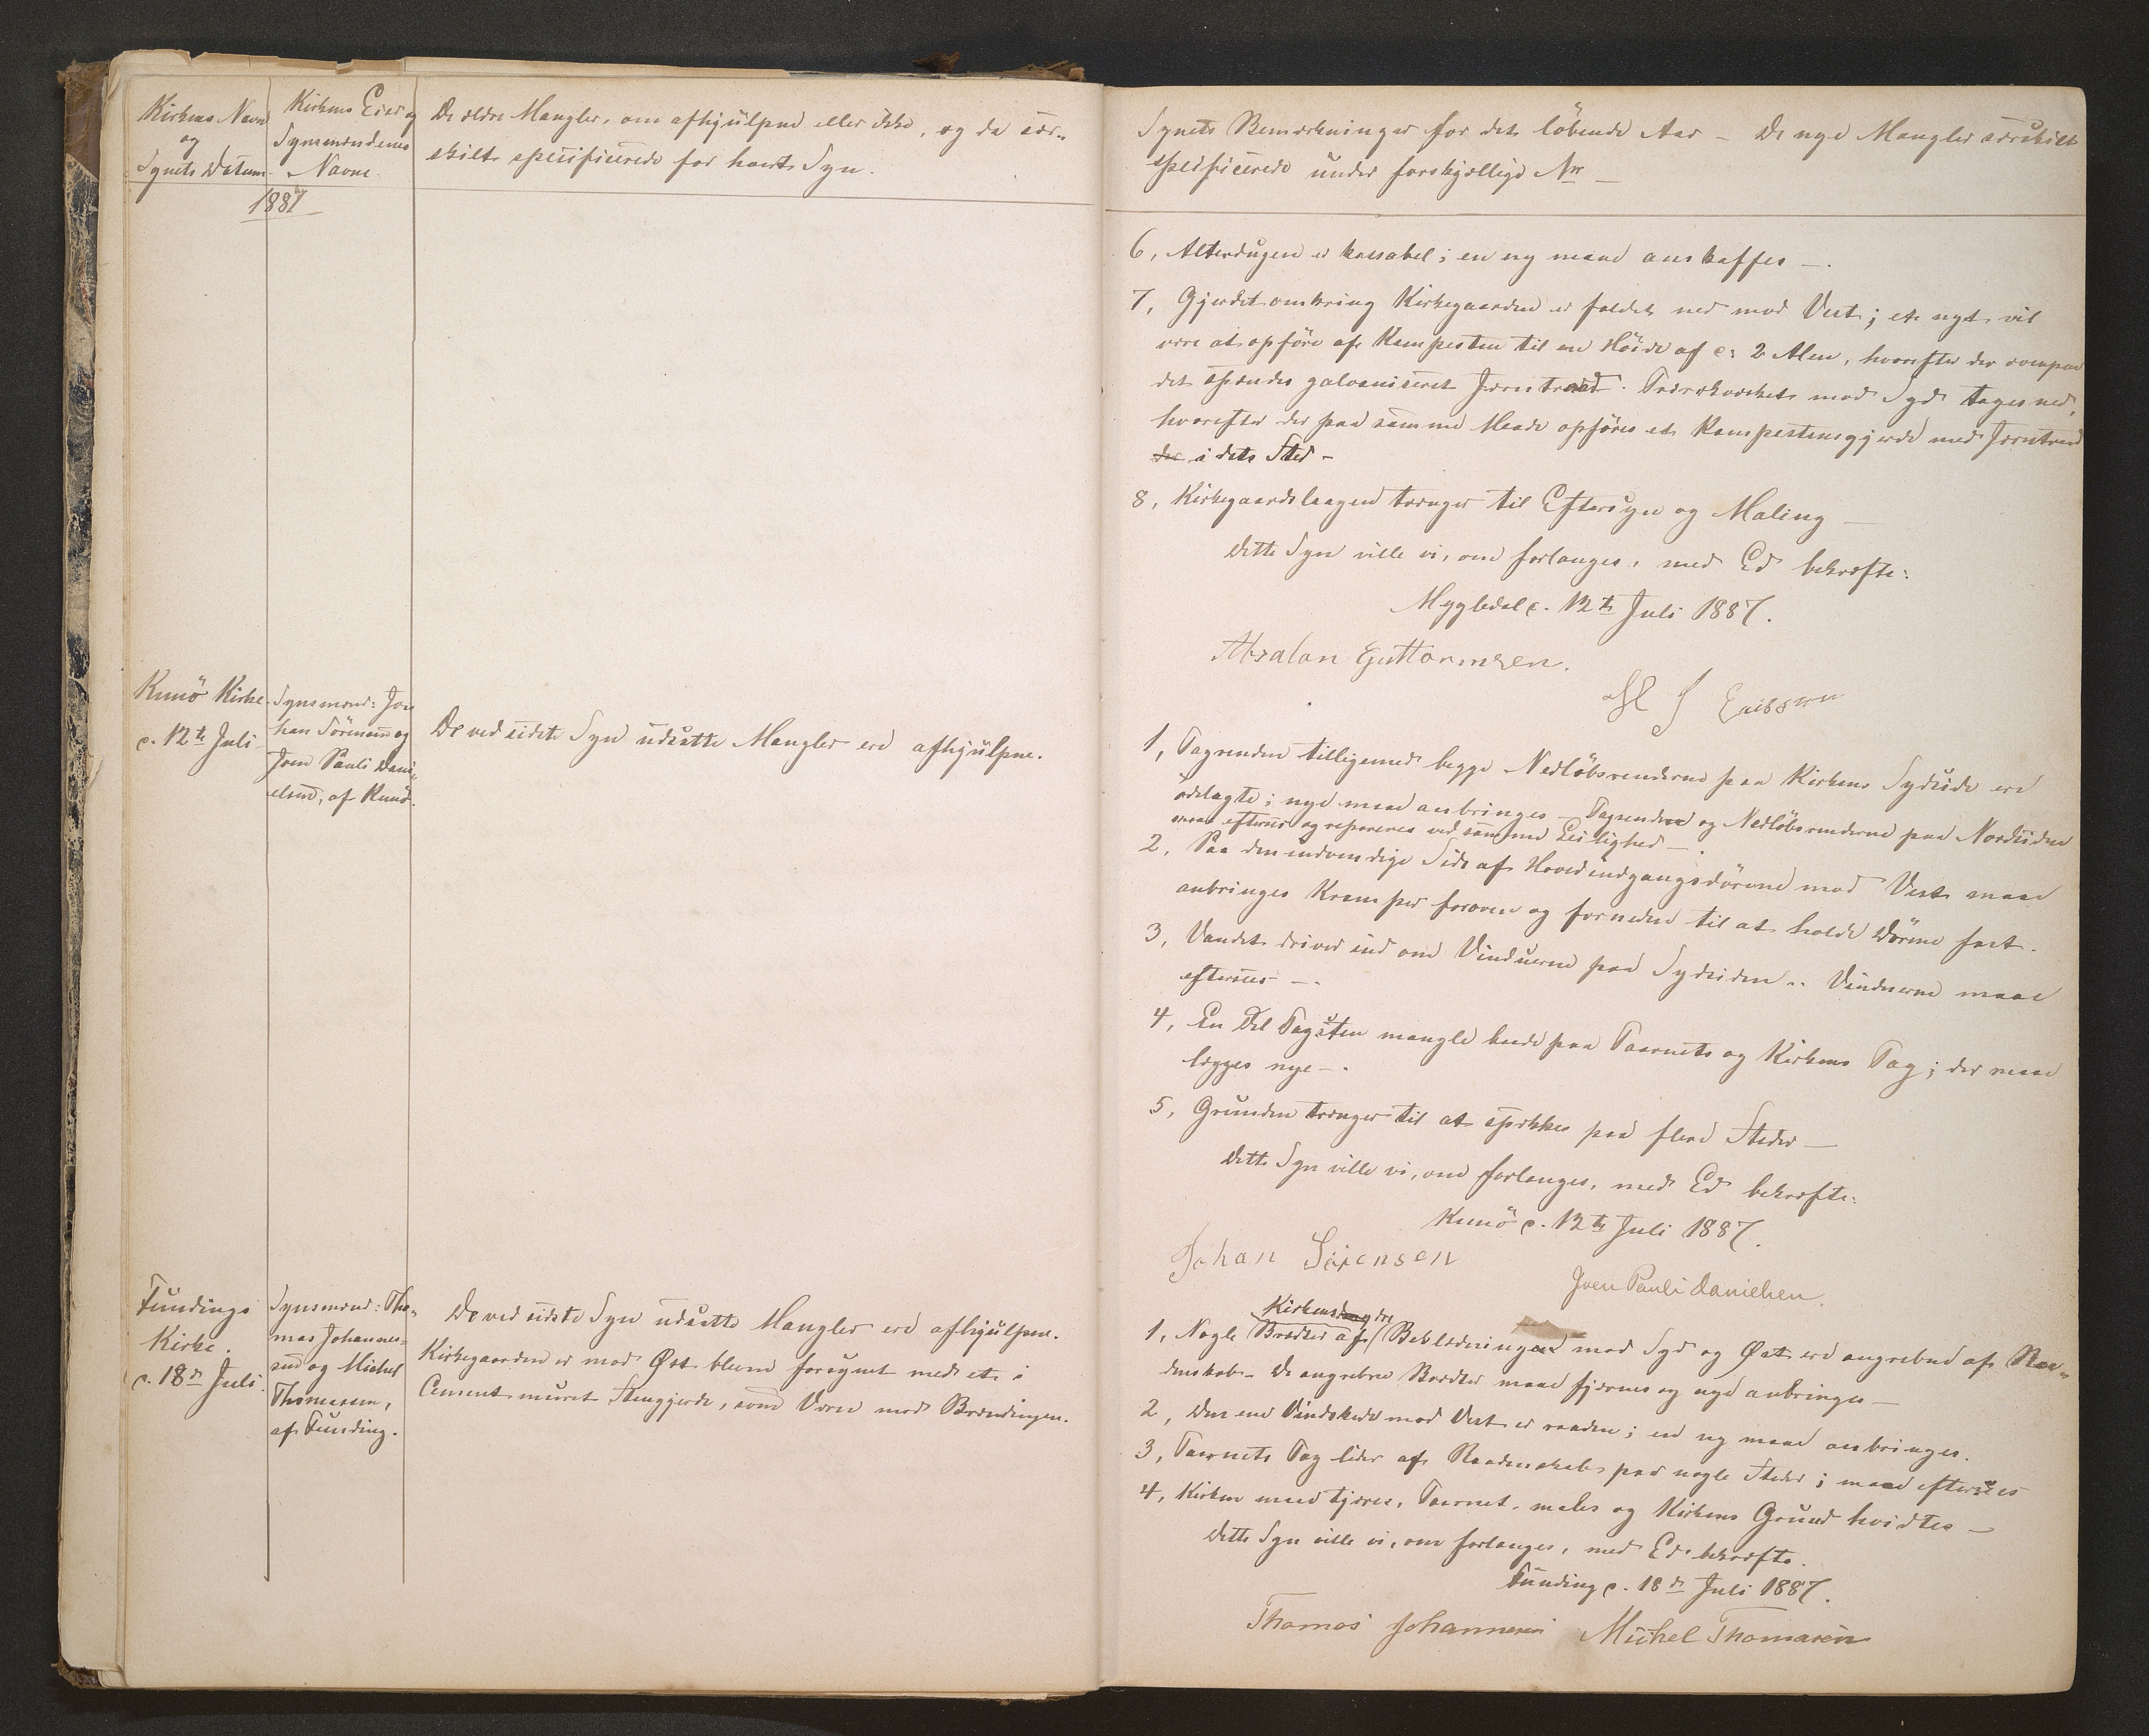 Kirkens Navn
og
Synets Datum.
Kirkens Eier og
Synsmændenes
Navne.
De ældre Mangler, om afhjulpne eller ikke, og da sær-
skilt specificerede for hvert Syn.
1887
Kunö Kirke
d. 12te Juli
Synsmænd: Jo-
han Sörensen og
Joen Pauli Dani-
elsen, af Kunö.
De ved sidste Syn udsatte Mangler ere afhjulpne.
Fundings
Kirke.
d. 18de Juli.
Synsmænd: Tho-
mas Johannes-
sen og Michel
Thomasen,
af Funding.
De ved sidste Syn udsatte Mangler ere afhjulpne.
Kirkegaarden er mod Øst bleven forsynet med et i
Cement muret Stengjerde, som Værn mod Brændingen.
Synets Bemærkninger for det löbende Aar – De nye Mangler særskilt
specificerede under forskjellige Nr –
6, Alterdugen er kassabel; en ny maa anskaffes –.
7, Gjerdet omkring Kirkegaarden er faldet ned mod Vest; et nyt vil
være at opföre af Kampesten til en Höide af c: 2 Alen, hvorefter der ovenpaa
det spændes galvaniseret Jerntraad. Træværket mod Syd tages ned,
hvorefter der paa samme Maade opföres et Kampestensgjerde med Jerntraad
i dets Sted –
8, Kirkegaardslaagen trænger til Eftersyn og Maling –
Dette Syn ville vi, om forlanges, med Ed bekræfte:
Mygledal d. 12te Juli 1887.
Absalon Guttormsen.
J
1, Tagrenden tilligemed begge Nedlöbsrenderne paa Kirkens Sydside ere
ödelagte; nye maa anbringes – Tagrenden og Nedlöbsrenderne paa Nordsiden
maa efterses og repareres ved samme Leilighed –.
2, Paa den indvendige Side af Hovedindgangsdörene mod Vest maa
anbringes Kramper foroven og forneden til at holde Dörene fast.
3, Vandet driver ind om Vinduerne paa Sydsiden. Vinduerne maae
efterses –.
4, En Del Tagsten mangle baade paa Taarnets og Kirkens Tag; der maa
lægges nye –.
5, Grunden trænger til at spækkes paa flere Steder –
Dette Syn ville vi, om forlanges, med Ed bekræfte:
Kunö d. 12te Juli 1887.
Johan Sörensen
Joen Pauli Danielsen.
Kirkens ydre
1, Nogle Brædder af Beklædningen mod Syd og Øst ere angrebne af Raa-
denskab. De angrebne Brædder maae fjernes og nye anbringes –
2, Den ene Vindskede mod Vest er raaden; en ny maa anbringes.
3, Taarnets Tag lider af Raadenskab paa nogle Steder; maa efterses
4, Kirken maa tjæres, Taarnet males og Kirkens Grund hvidtes –
Dette Syn ville vi, om forlanges, med Ed bekræfte.
Funding d. 18de Juli 1887.
Thomas Johannesen Michel Thomasen